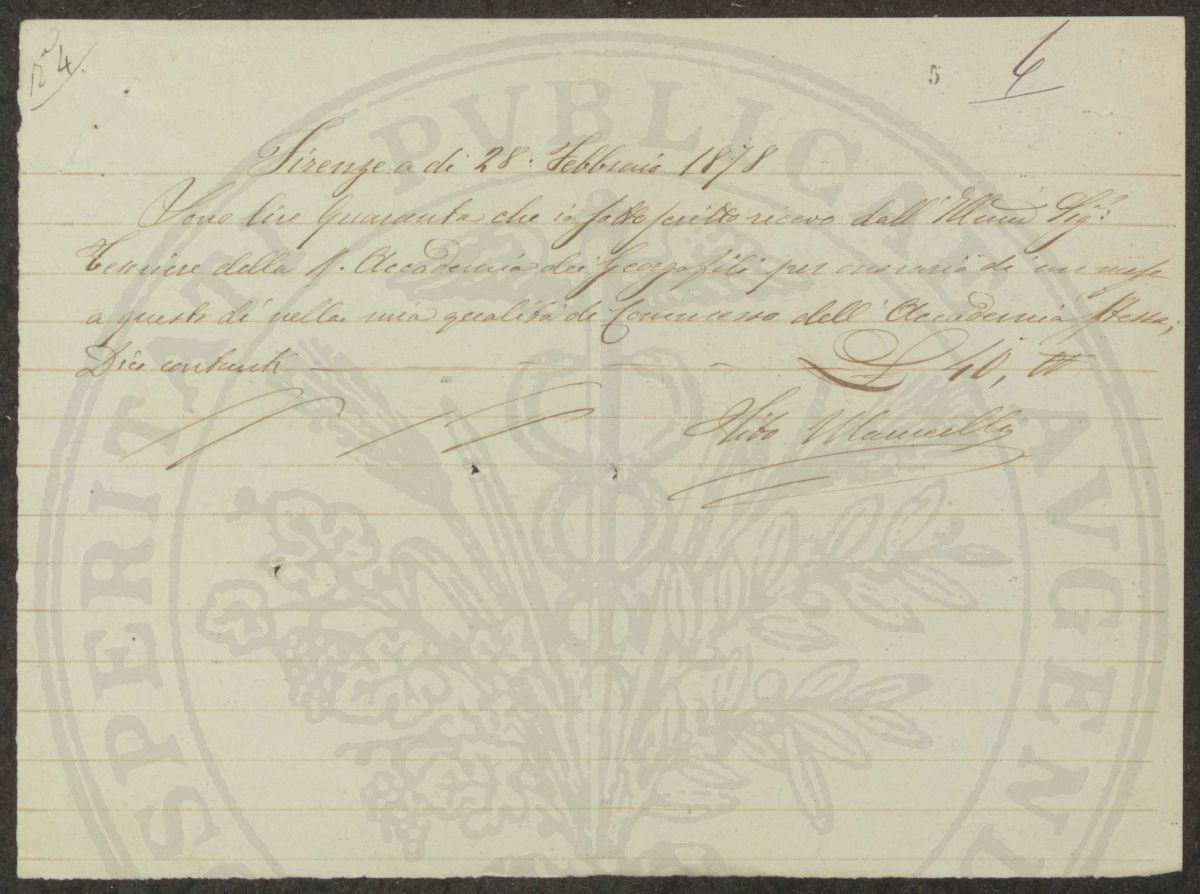 nº 4
5
6
Firenze a dì 28. Febbraio 1878
Sono lire Quaranta che io sottoscritto ricevo dall' Illmo Sigr:
Tesoriere della R. Accademia dei Georgofili per onorario di un mese
a questo dì nella mia qualità di Commesso dell' Accademia stessa;
Dico contanti — — — — — £ 40, "
Vito Marucelli
PROSPERITATI PVBLICAE AVGENDAE